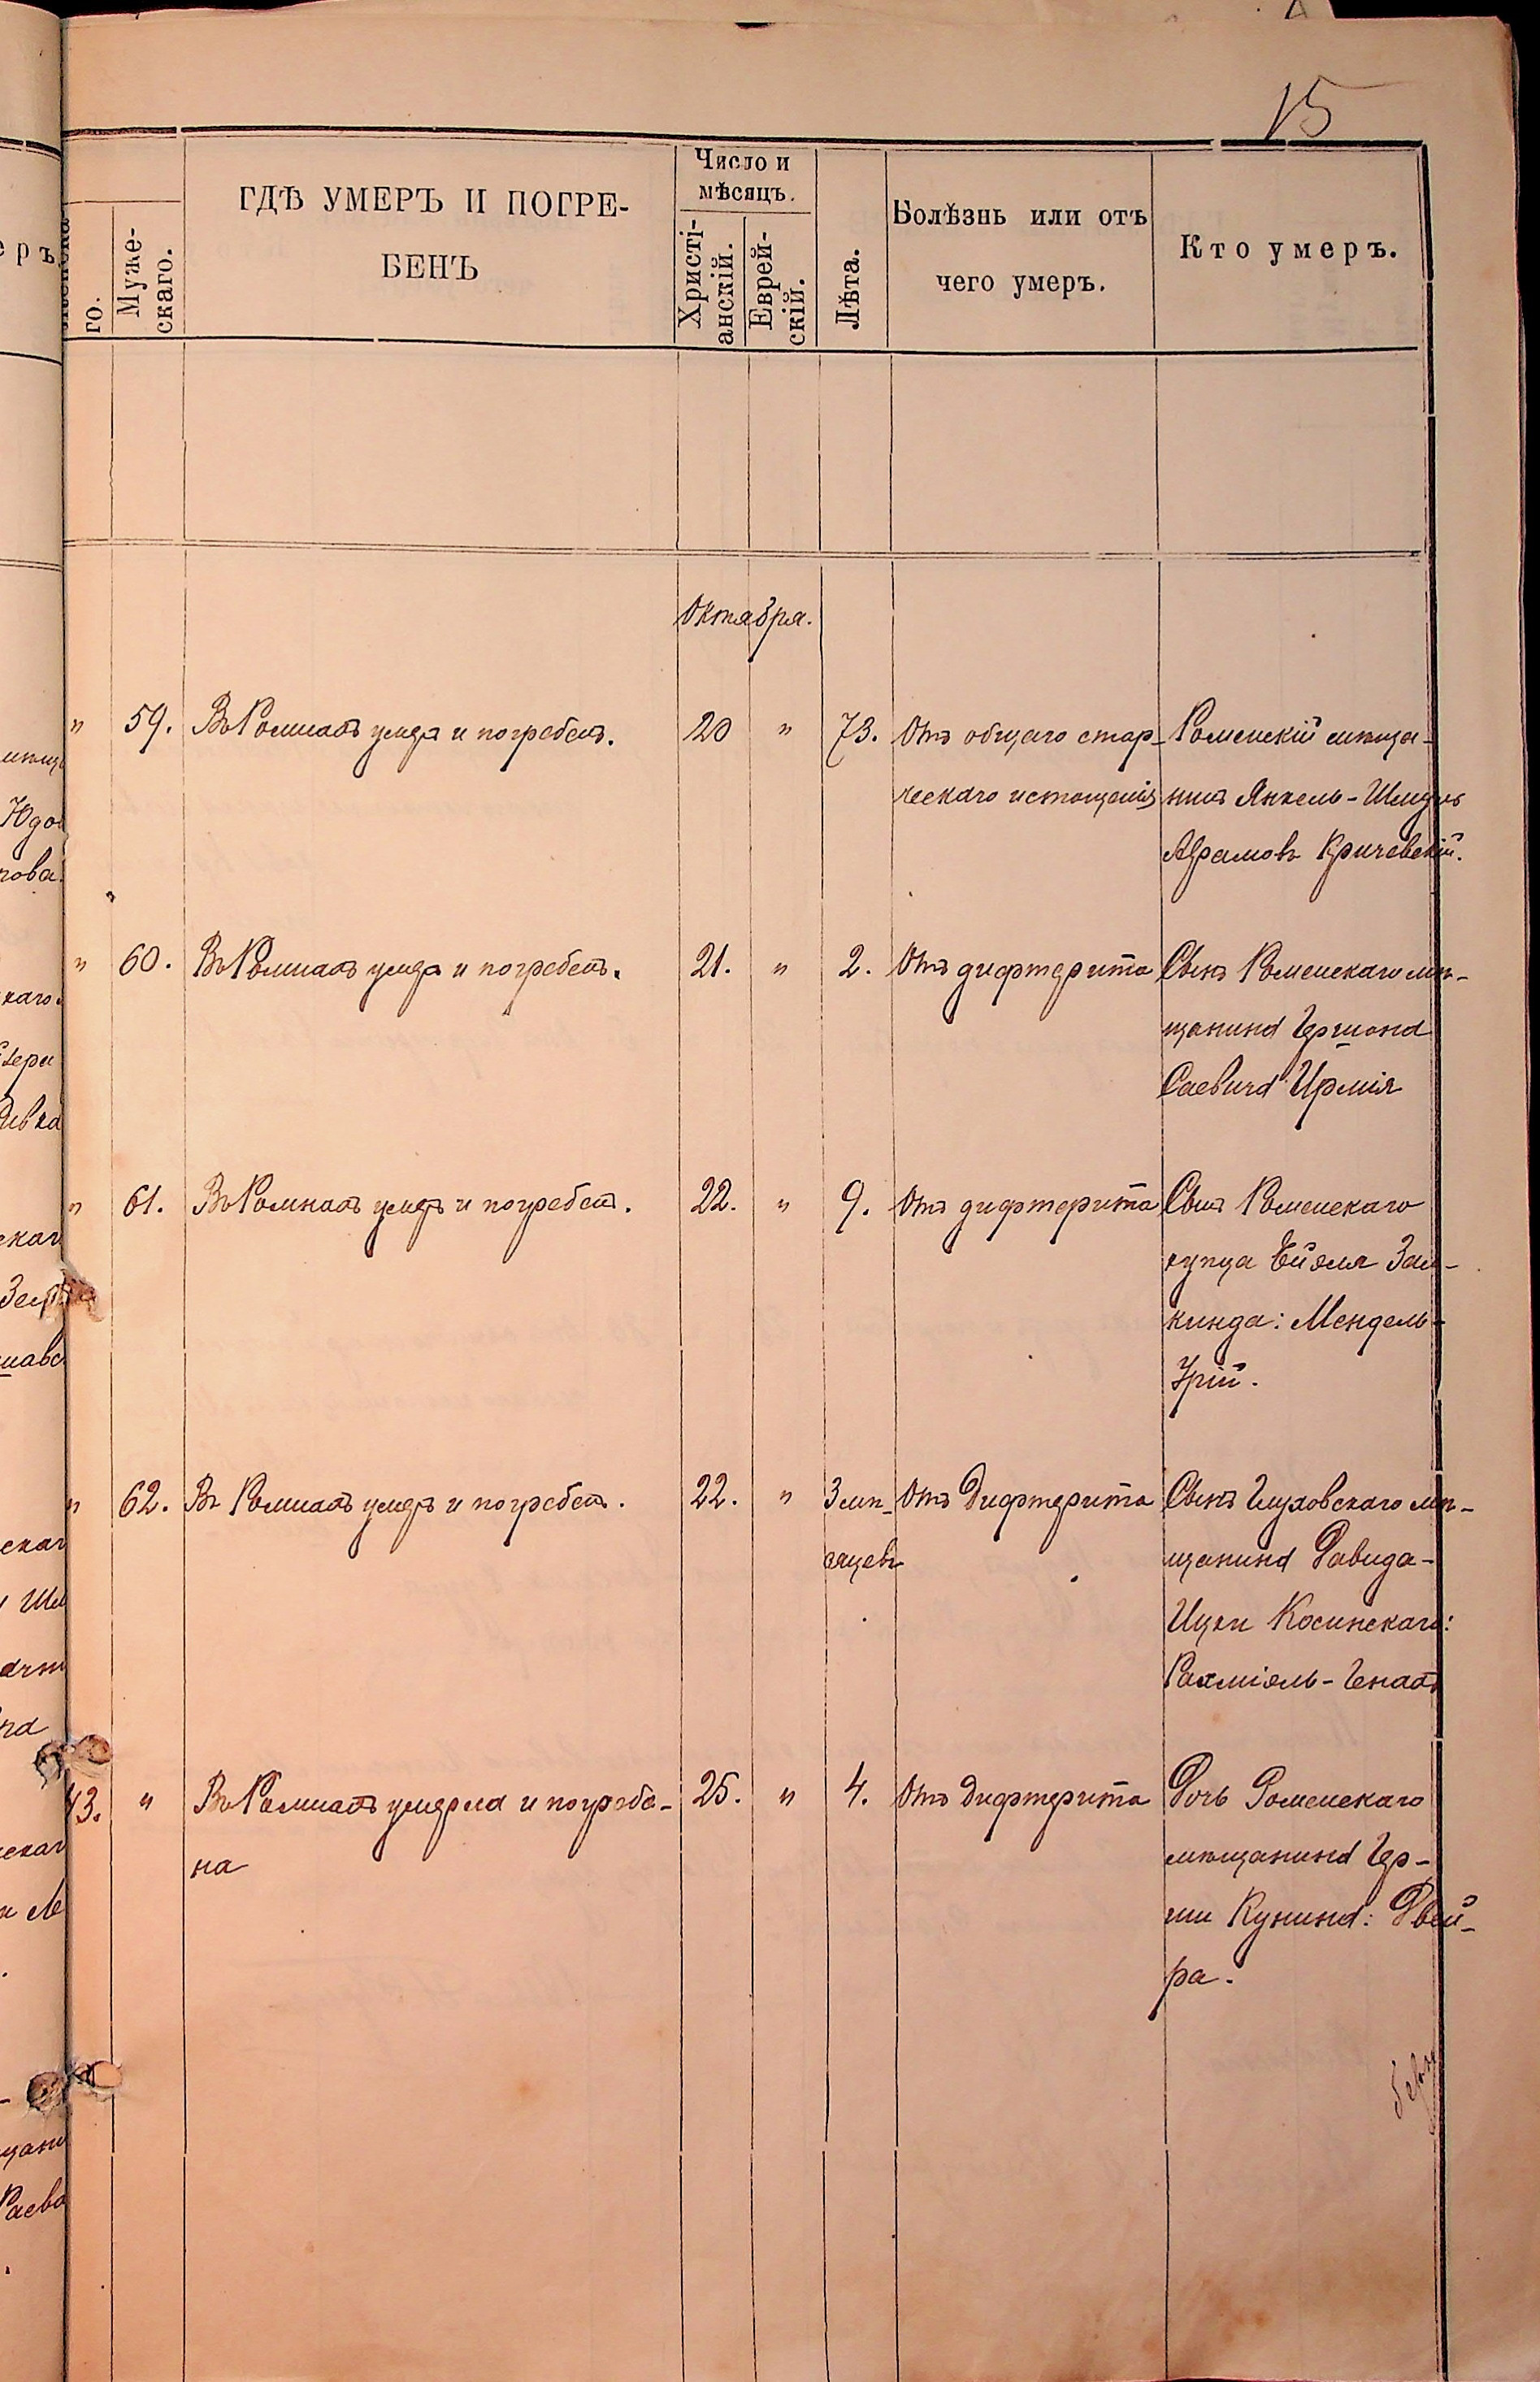 15
Число и
мѣсяцъ.
ГДѢ УМЕРЪ И ПОГРЕ-
БЕНЪ
го.
Муже-
скаго.
Христі-
анскій.
Еврей-
скій.
Лѣта.
Болѣзнь или отъ
чего умеръ.
Кто умеръ.
Октября.
" 59. Въ Ромнахъ умеръ и погребенъ. 20 " 73. Отъ общаго стар- Роменскій мѣща-
ческаго истощенія нинъ Янкель-Шмуль
Абрамовъ Кричевскій.
" 60. Въ Ромнахъ умеръ и погребенъ. 21. " 2. Отъ дифтерита Сынъ Роменскаго мѣ-
щанина Гершона
Саевича Ирмія
" 61. Въ Ромнахъ умеръ и погребенъ. 22. " 9. Отъ дифтерита Сынъ Роменскаго
купца Ейэля Зал-
кинда: Мендель-
Урій.
" 62. Въ Ромнахъ умеръ и погребенъ. 22. " 3 мѣ- Отъ Дифтерита Сынъ Глуховскаго мѣ-
сяцевъ щанина Давида-
Ицки Косинскаго:
Рахміэль-Генахъ
43. " Въ Ромнахъ умерла и погребе- 25. " 4. Отъ Дифтерита Дочь Роменскаго
на мѣщанина Гер-
ши Кунина: Двей-
ра.